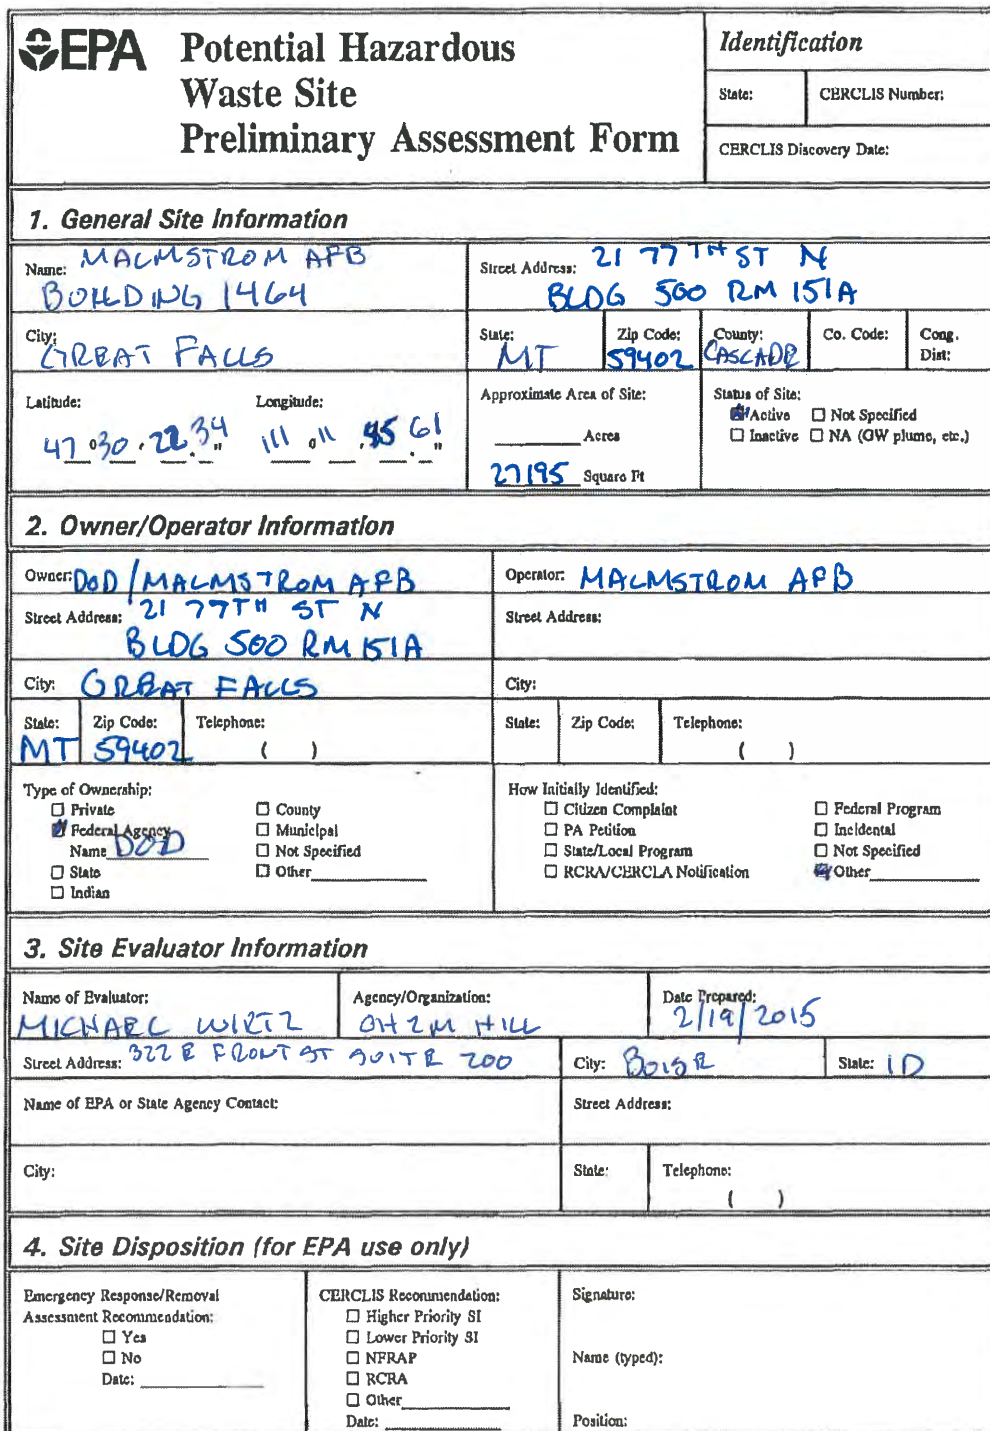 EPA Potential Hazardous
Waste Site
Preliminary Assessment Form
Identification
State: CERCLIS Number:
CERCLIS Discovery Date:
1. General Site Information
Name: MALMSTROM AFB
BUILDING 1464
Street Address: 21 77TH ST N
BLDG 500 RM 151A
City: GREAT FALLS
State: MT
Zip Code: 59402
County: CASCADE
Co. Code:
Cong. Dist:
Latitude: 47 ° 30 ' 22.34 "
Longitude: 111 ° 11 ' 45.61 "
Approximate Area of Site:
Acres
27195 Square Ft
Status of Site:
Active ☐ Not Specified
☐ Inactive ☐ NA (GW plume, etc.)
2. Owner/Operator Information
Owner: DOD/MALMSTROM AFB
Operator: MALMSTROM AFB
Street Address: 21 77TH ST N
BLDG 500 RM 151A
Street Address:
City: GREAT FALLS
City:
State: MT
Zip Code: 59402
Telephone: ( )
State:
Zip Code:
Telephone: ( )
Type of Ownership:
☐ Private ☐ County
Federal Agency ☐ Municipal
Name DOD ☐ Not Specified
☐ State ☐ Other
☐ Indian
How Initially Identified:
☐ Citizen Complaint ☐ Federal Program
☐ PA Petition ☐ Incidental
☐ State/Local Program ☐ Not Specified
☐ RCRA/CERCLA Notification Other
3. Site Evaluator Information
Name of Evaluator: MICHAEL WIRTZ
Agency/Organization: CH2M HILL
Date Prepared: 2/19/2015
Street Address: 322 E FRONT ST SUITE 200
City: BOISE
State: ID
Name of EPA or State Agency Contact:
Street Address:
City:
State:
Telephone: ( )
4. Site Disposition (for EPA use only)
Emergency Response/Removal
Assessment Recommendation:
☐ Yes
☐ No
Date:
CERCLIS Recommendation:
☐ Higher Priority SI
☐ Lower Priority SI
☐ NFRAP
☐ RCRA
☐ Other
Date:
Signature:
Name (typed):
Position: